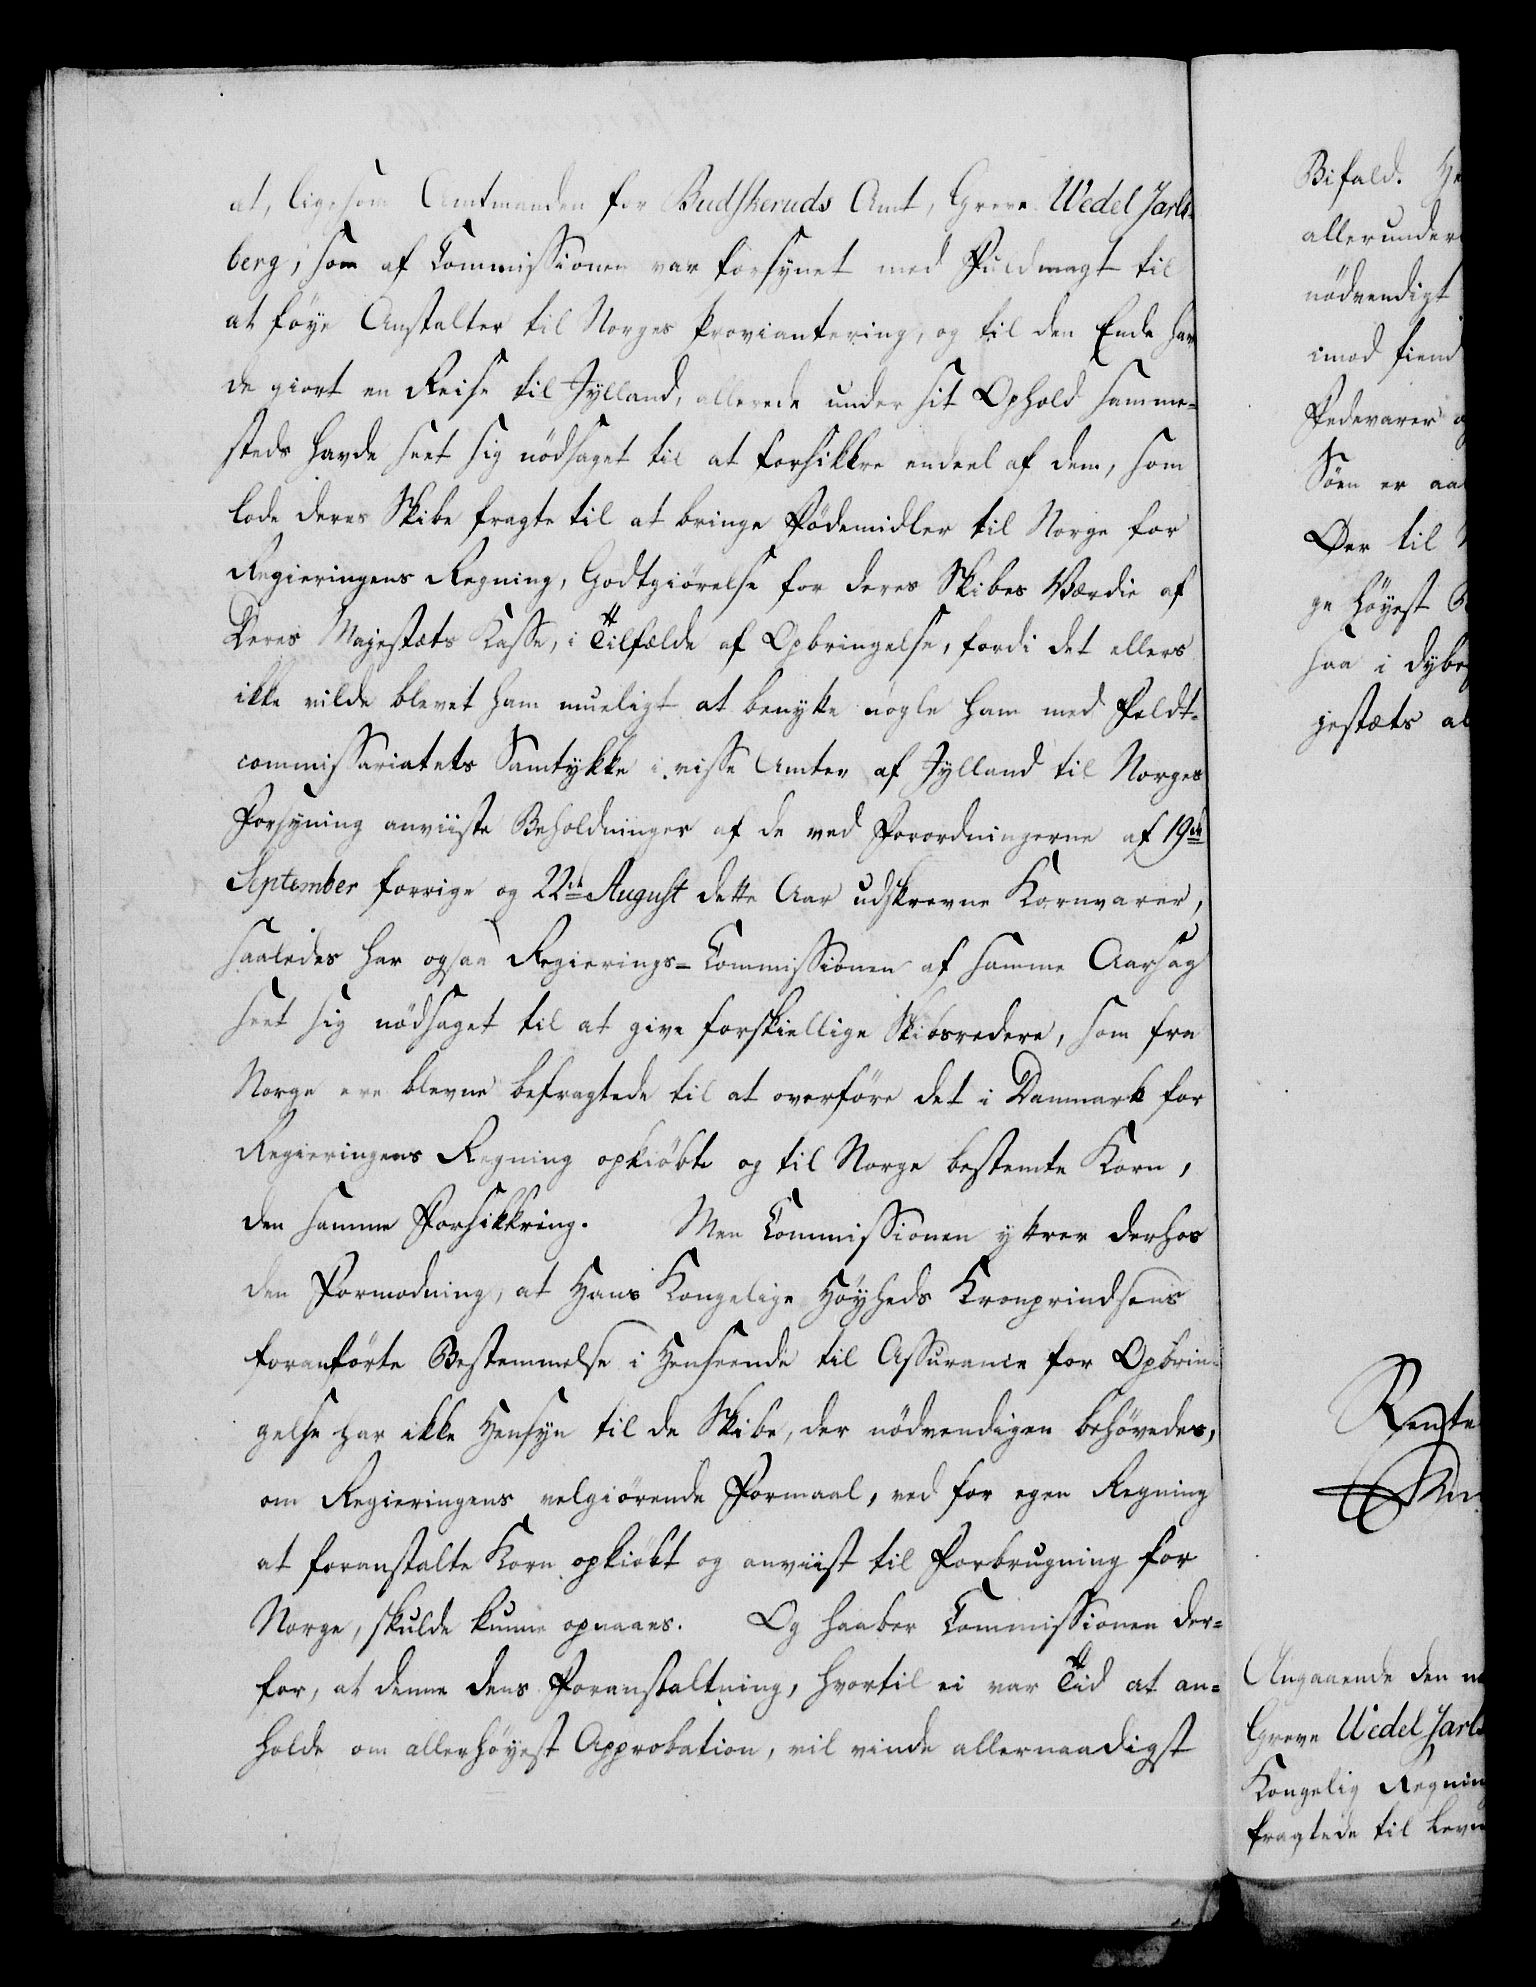 at, ligesom Amtmanden for Budskeruds Amt, Greve Wedel Jarls-
berg, som af Commissionen var forsynet med Fuldmagt til
at föye Anstalter til Norges Proviantering, og til den Ende hav
de giort en Reise til Jylland, allerede under sit Ophold samme-
steds havde seet sig nödsaget til at forsikkre endeel af dem, som
lode deres Skibe fragte til at bringe Födemidler til Norge for
Regieringens Regning, Godtgiörelse for deres Skibes Værdie af
Deres Majestæts Kasse, i Tilfælde af Opbringelse, fordi det ellers
ikke vilde blevet ham mueligt at benytte nogle ham med Feldt-
commissariatets Samtykke i visse Amter af Jylland til Norges
Forsyning anviiste Beholdninger af de ved Forordningerne af 19de
September forrige og 22de August dette Aar udskrevne Kornvarer,
saaledes har ogsaa Regierings-Commissionen af samme Aarsag
seet sig nödsaget til at give forskiellige Skibsredere, som fra
Norge ere blevne befragtede til at overföre det i Danmark for
Regieringens Regning opkiöbte og til Norge bestemte Korn,
den samme Forsikkring. Men Commissionen yttrer derhos
den Formodning, at Hans Kongelige Höyheds Kronprindsens
foranförte Bestemmelse i Henseende til Assurance for Opbrin-
gelse har ikke Hensyn til de Skibe, der nödvendigen behövedes,
om Regieringens velgiörende Formaal, ved for egen Regning
at foranstalte Korn opkiöbt og anviist til Forbrugning for
Norge, skulde kunne opnaaes. Og haaber Commissionen der-
for, at denne dens Foranstaltning, hvortil ei var Tid at an-
holde om allerhöyest Approbation, vil vinde allernaadigst
Bifald.
allerunder
nödvendigt
imod fiend
Fedevarer
Söen er
Öer til
ge höyest
saa i dybes
jestæts al
Rente
Angaaende den
Greve Wedel Jarls
Kongelig Regning
fragtede til